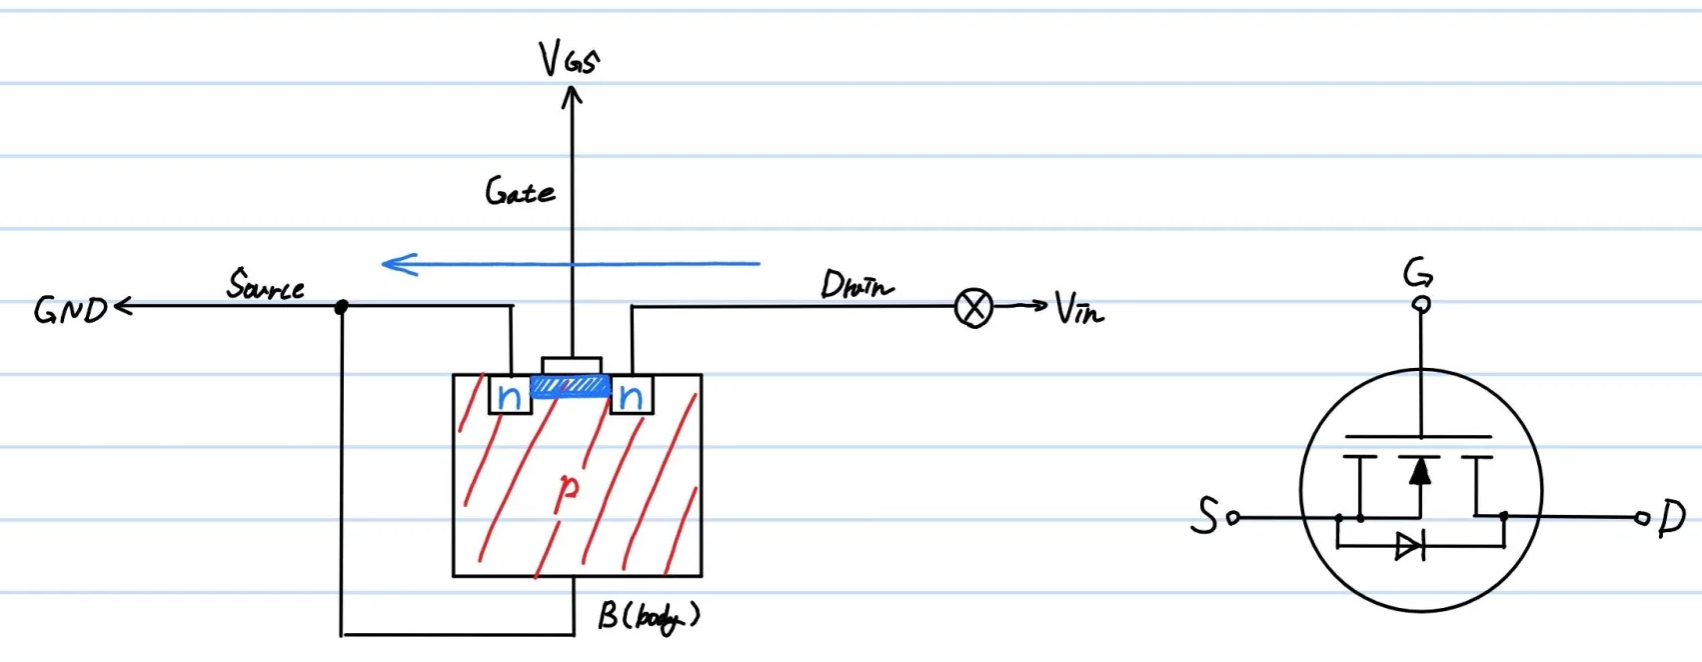 VGS
Gate
Source
Drain
GND
Vin
n
n
p
B(body)
G
S
D